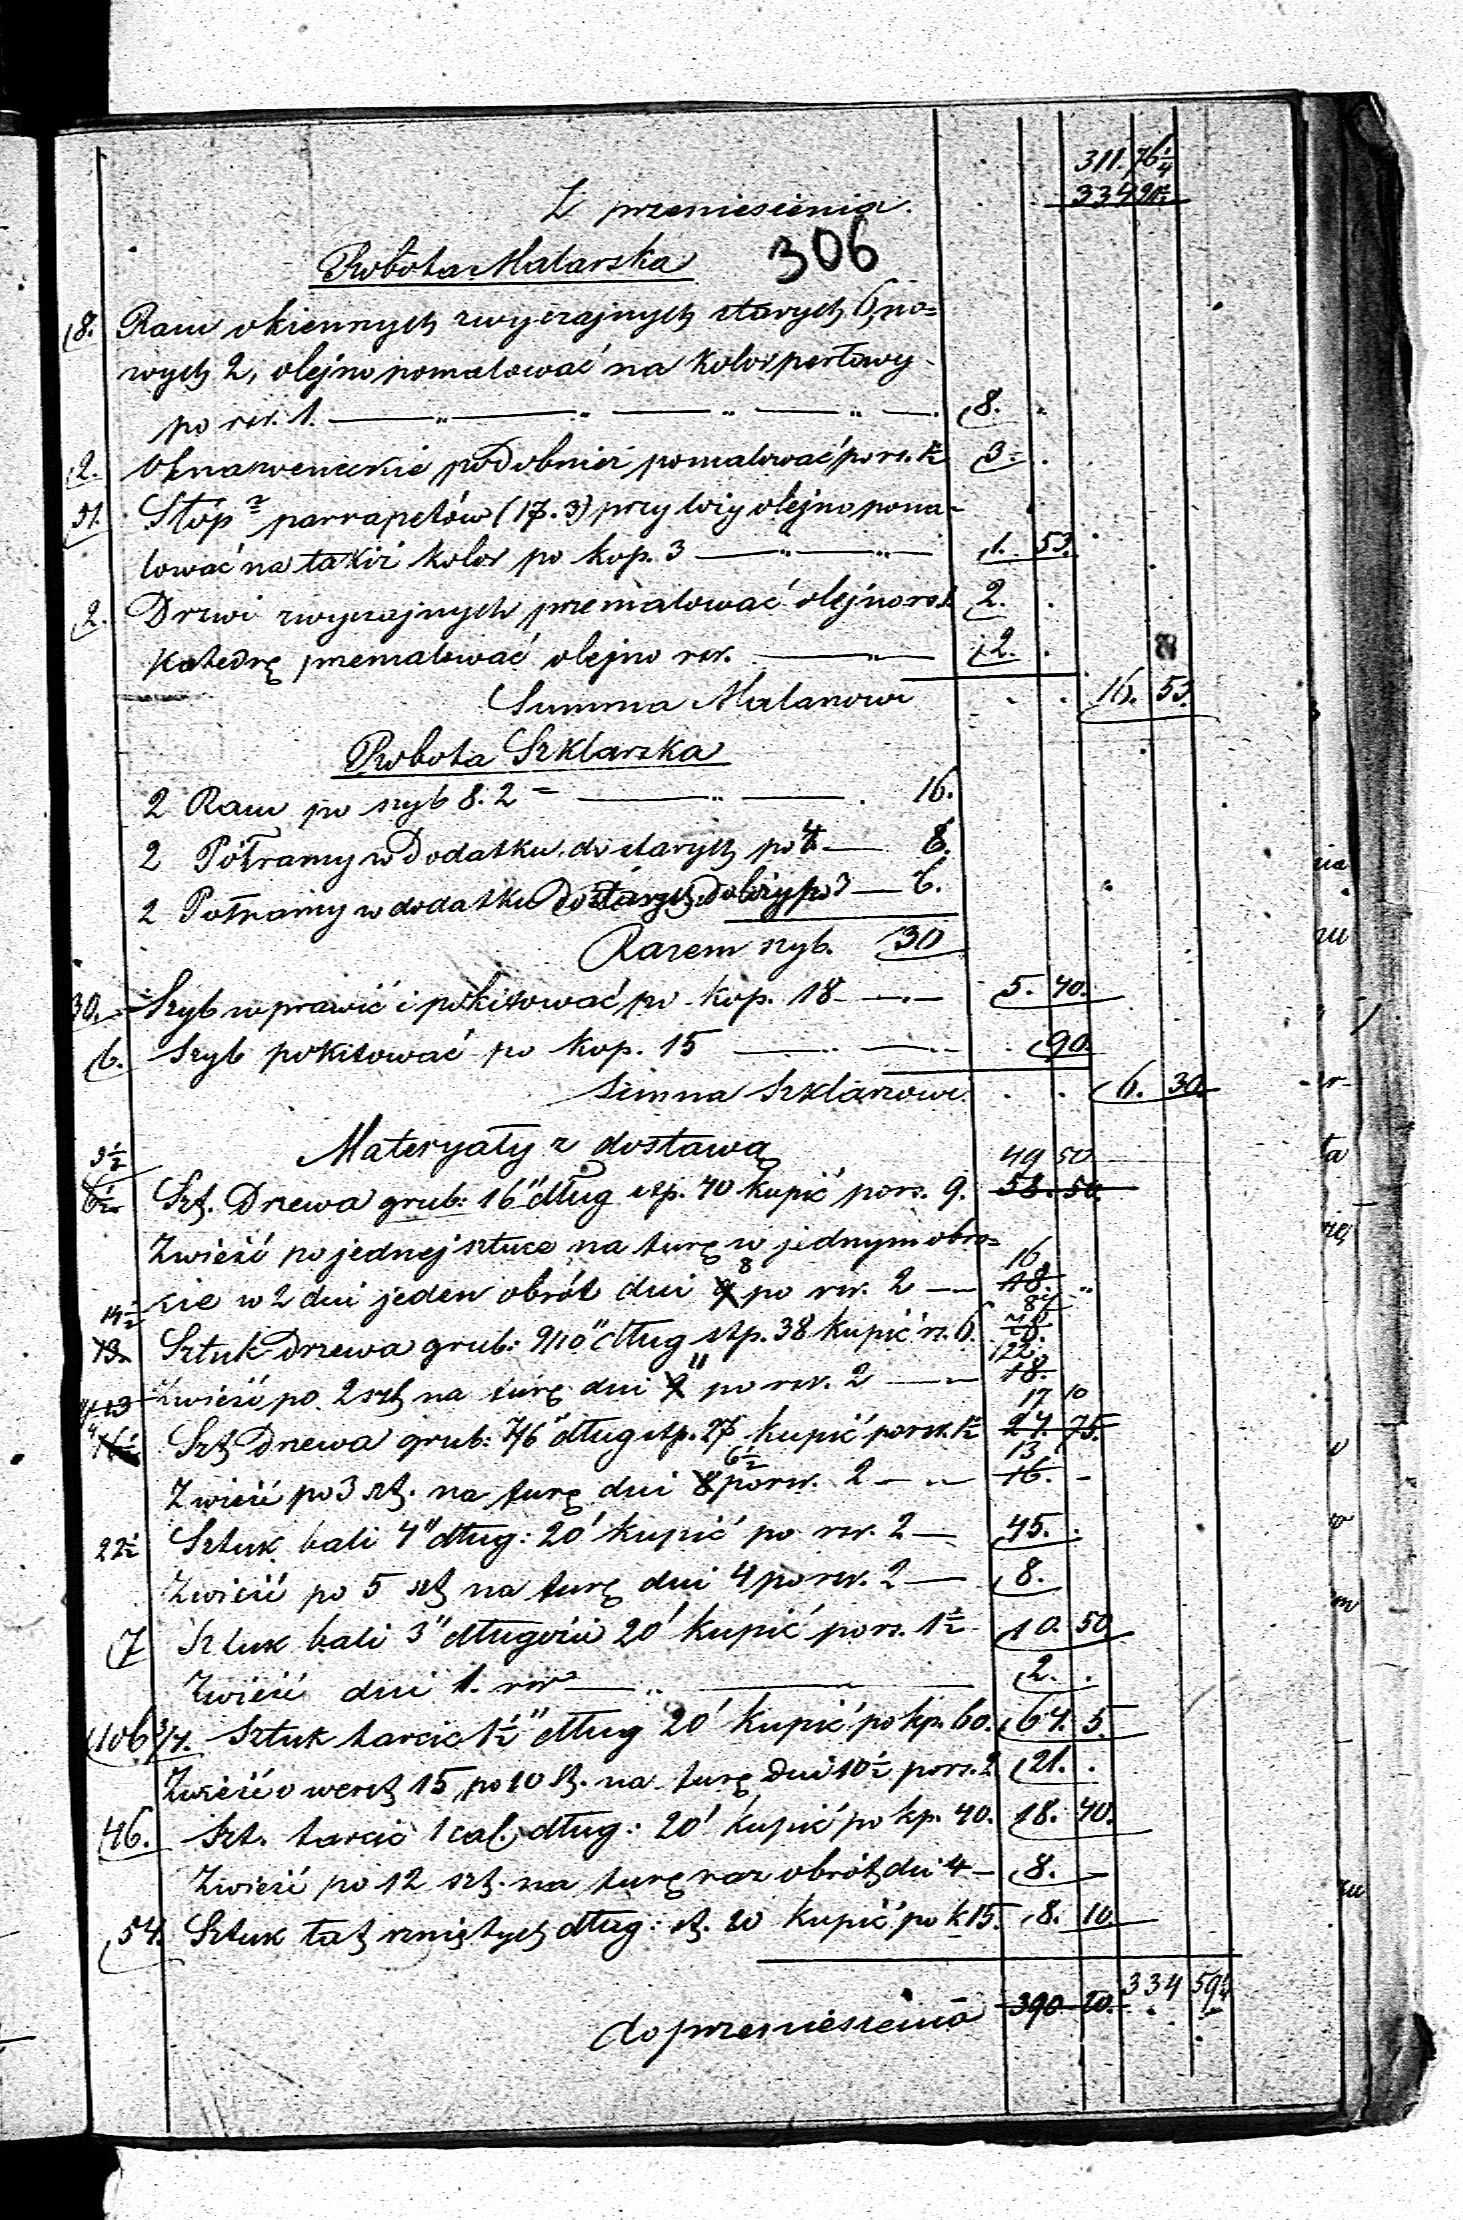 311. 76 1/4
Z przeniesienia. 334 91 1/2
306
Robota Malarska
8. Ram okiennych zwyczajnych starych 6, no=
wych 2, olejno pomalować na kolor perłowy
po rsr. 1. — " — " — " — " — 8. "
2. Okna weneckie podobnież pomalować po rs. 1 1/2 3 = .
51. Stóp parrapetów (17.3) przy tejż olejno poma-
lować na takiż kolor po kop. 3 — " — " — 1. 53.
2. Drzwi zwyczajnych przemalować olejno rs 1. 2. .
Katedrę przemalować olejno rsr. — " — 2. .
Summa Malarzowi . . 16. 53.
Robota Szklarska
2 Ram po szyb 8. 2 = — " — . 16.
2 Półramy w dodatku do starych po 4 — 8.
2 Półramy w dodatku do starych po 3 — 6.
Razem szyb. 30
30. Szyb wprawić i pokitować po kop. 18 — " — 5. 40.
6. Szyb pokitować po kop. 15 — " — " — . 90.
Summa Szklarzowi . . 6. 30.
Materyały z dostawą
5 1/2 49 50
6 1/2 Szt. Drzewa grub: 16" dług stp. 40 kupić po rs. 9. 58. 50.
Zwieźć po jednej sztuce na furę w jednym obro=
cie w 2 dni jeden obrót dni 9 8 po rsr. 2 — " — 18. 16 "
14 1/2
13. Sztuk Drzewa grub: 9/10" dług stp. 38 kupić rs. 6. 78. 87
Zwieźć po 2 szt na furę dni 9 11 po rsr. 2 — " — 18. 22.
17 10
16 1/2 Szt Drzewa grub: 7/6" dług stp. 27 kupić po rsr. 1 1/2 24. 75.
Zwieźć po 3 szt. na furę dni 8 6 1/2 po rsr. 2 — " — 16. 13 -
22 1/2 Sztuk bali 4" dług: 20' kupić po rsr. 2 — 45. .
Zwieźć po 5 szt na furę dni 4 po rsr. 2 — 8.
7 Sztuk bali 3" długości 20' kupić po rs. 1 1/2 10. 50
Zwieźć dni 1. rsr — " — " — 2. .
106 3/4. Sztuk tarcic 1 1/2" dług 20' kupić po kp. 60. 64. 5.
Zwieźć o werst 15, po 10 szt. na furę dni 10 1/2 po rs. 2 21. .
46. Szt. tarcic 1 cal. dług: 20' kupić po kp. 40. 18. 40.
Zwieźć po 12 szt. na furę raz obrót dni 4 — 8. —
54. Sztuk łat rzniętych dług: st. 20 kupić po k 15. 8. 10
do przeniesienia 390 20. 334 59 1/4